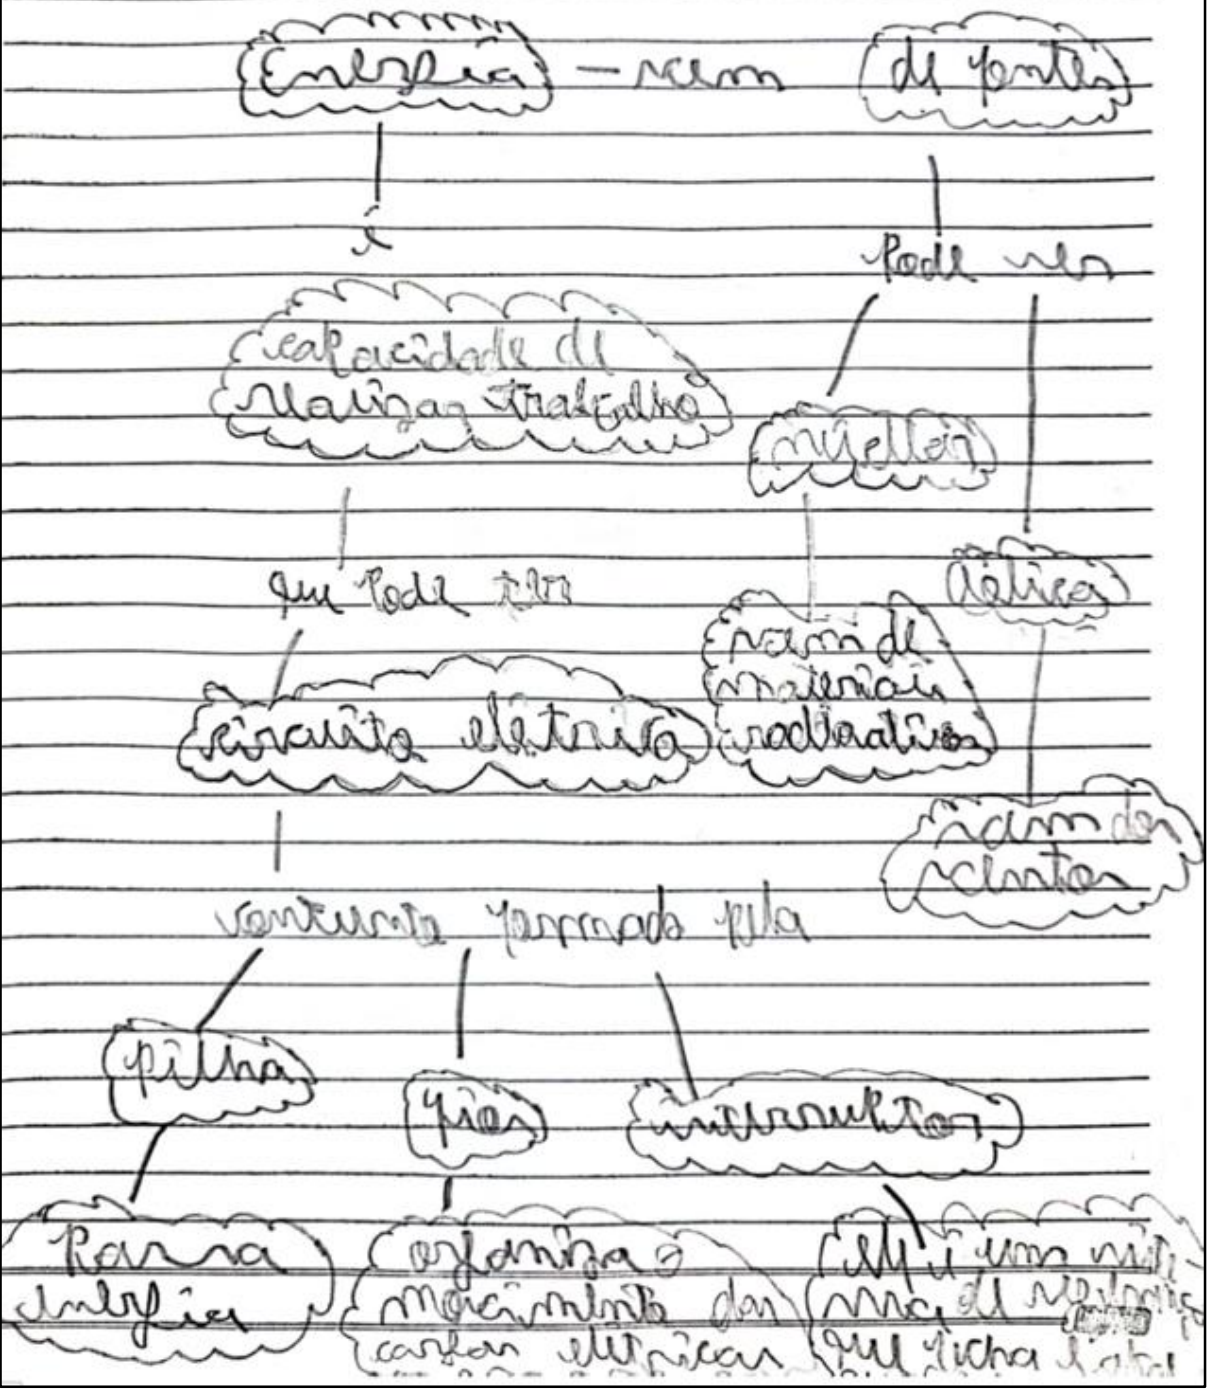 Energia - vem de fontes
é
Pode ser
capacidade de
realizar trabalho
nuclear
que Pode ter
eólica
vam de
materiais
radioativos
circuito elétrico
vam dos
ventos
conjunto formado pela
pilha
fios
interruptor
Passa
energia
organiza o
movimento das
cargas elétricas
é um siste-
ma de
que fecha e